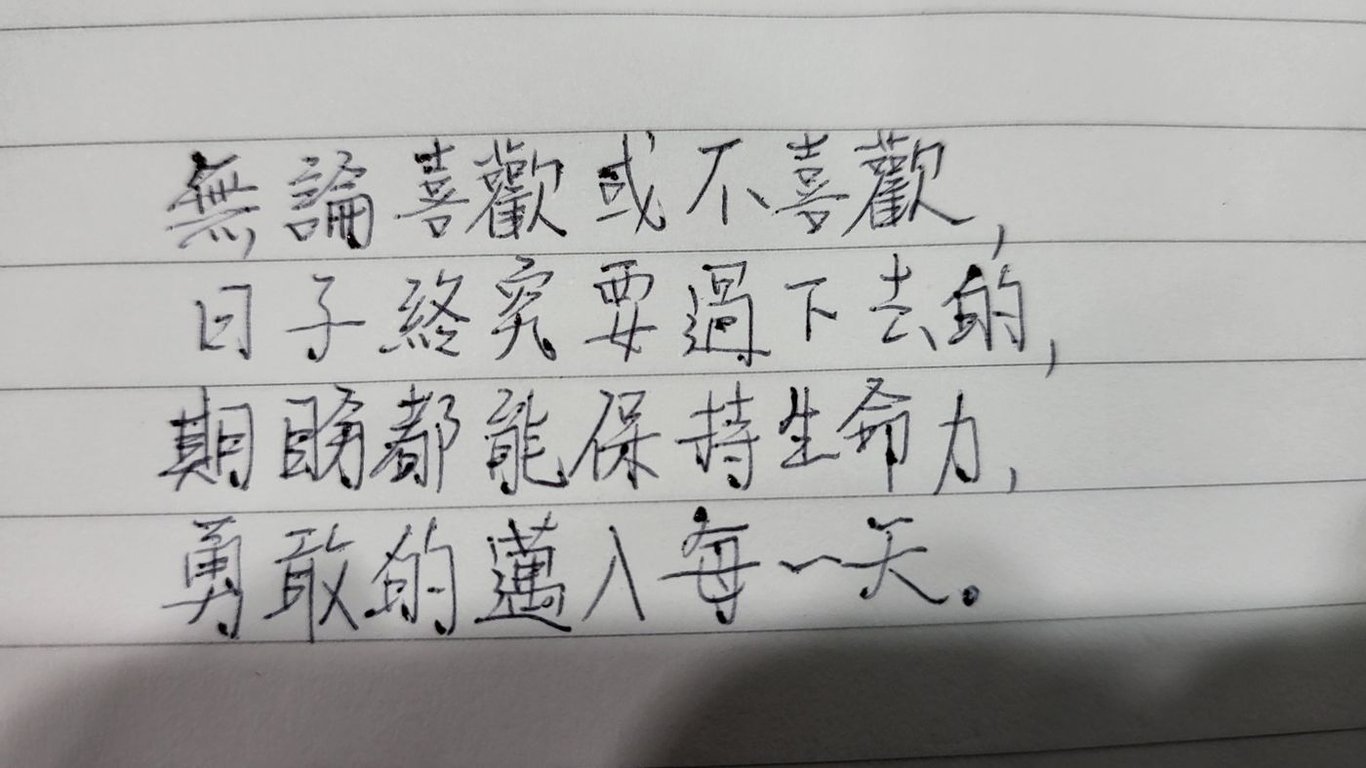 無論喜歡或不喜歡,
日子終究要過下去的,
期盼都能保持生命力,
勇敢的邁入每一天。